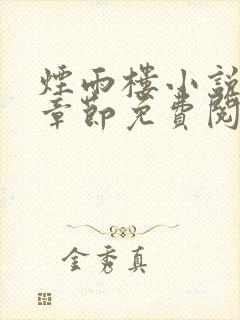 煙雨樓小說
章節免費閱
金秀真